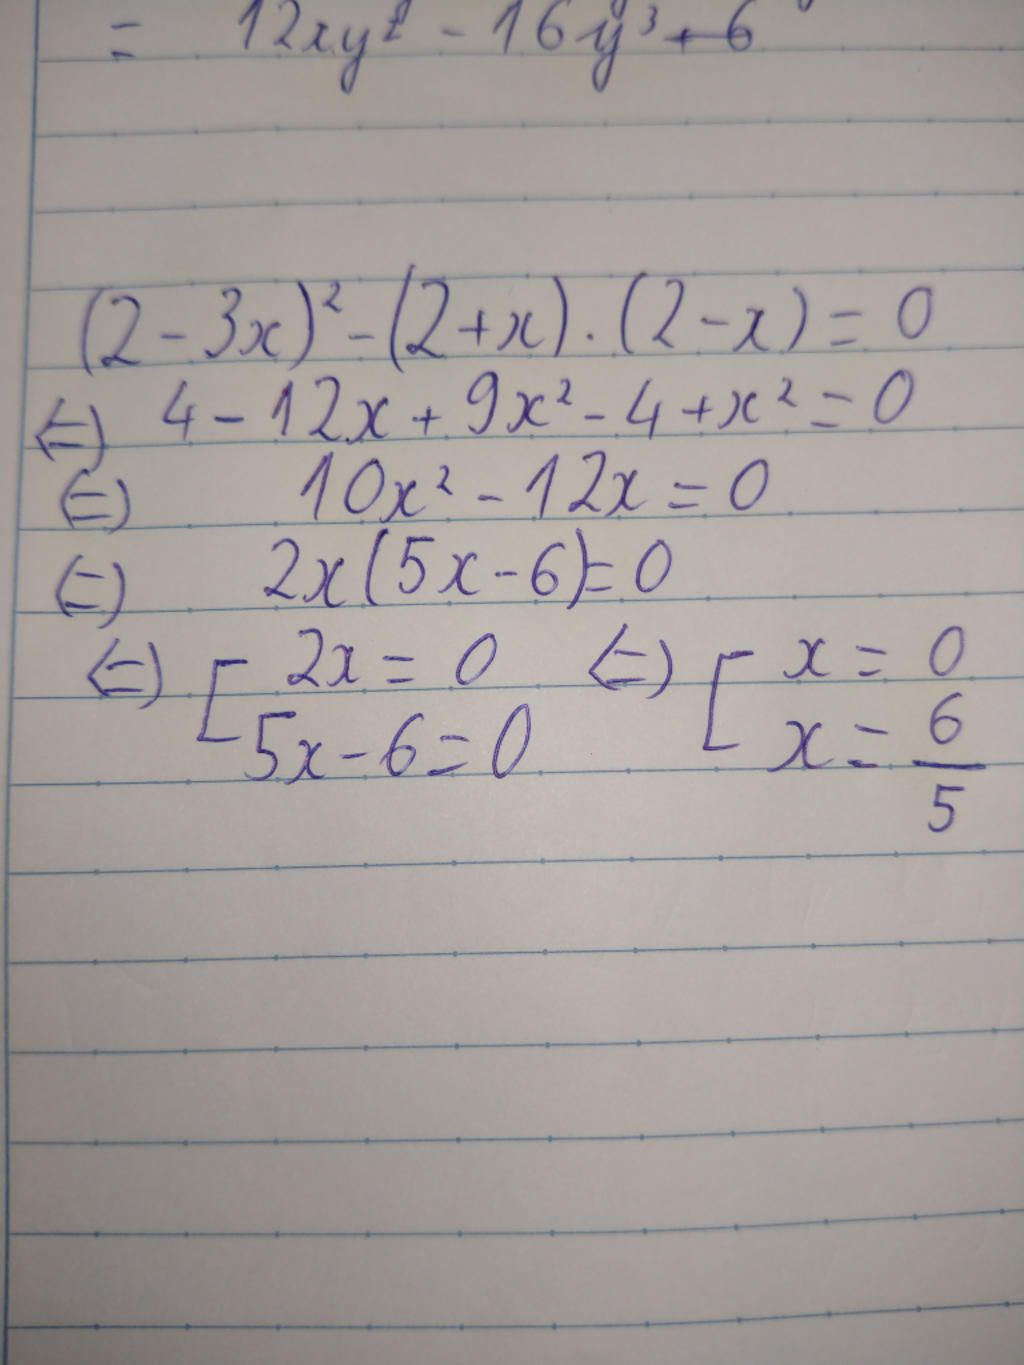 = 12xy² - 16y³ + 6
(2 - 3x)² - (2 + x) . (2 - x) = 0
(=) 4 - 12x + 9x² - 4 + x² = 0
(=) 10x² - 12x = 0
(=) 2x(5x - 6) = 0
(=) [ 2x = 0 (=) [ x = 0
5x - 6 = 0 x = 6/5